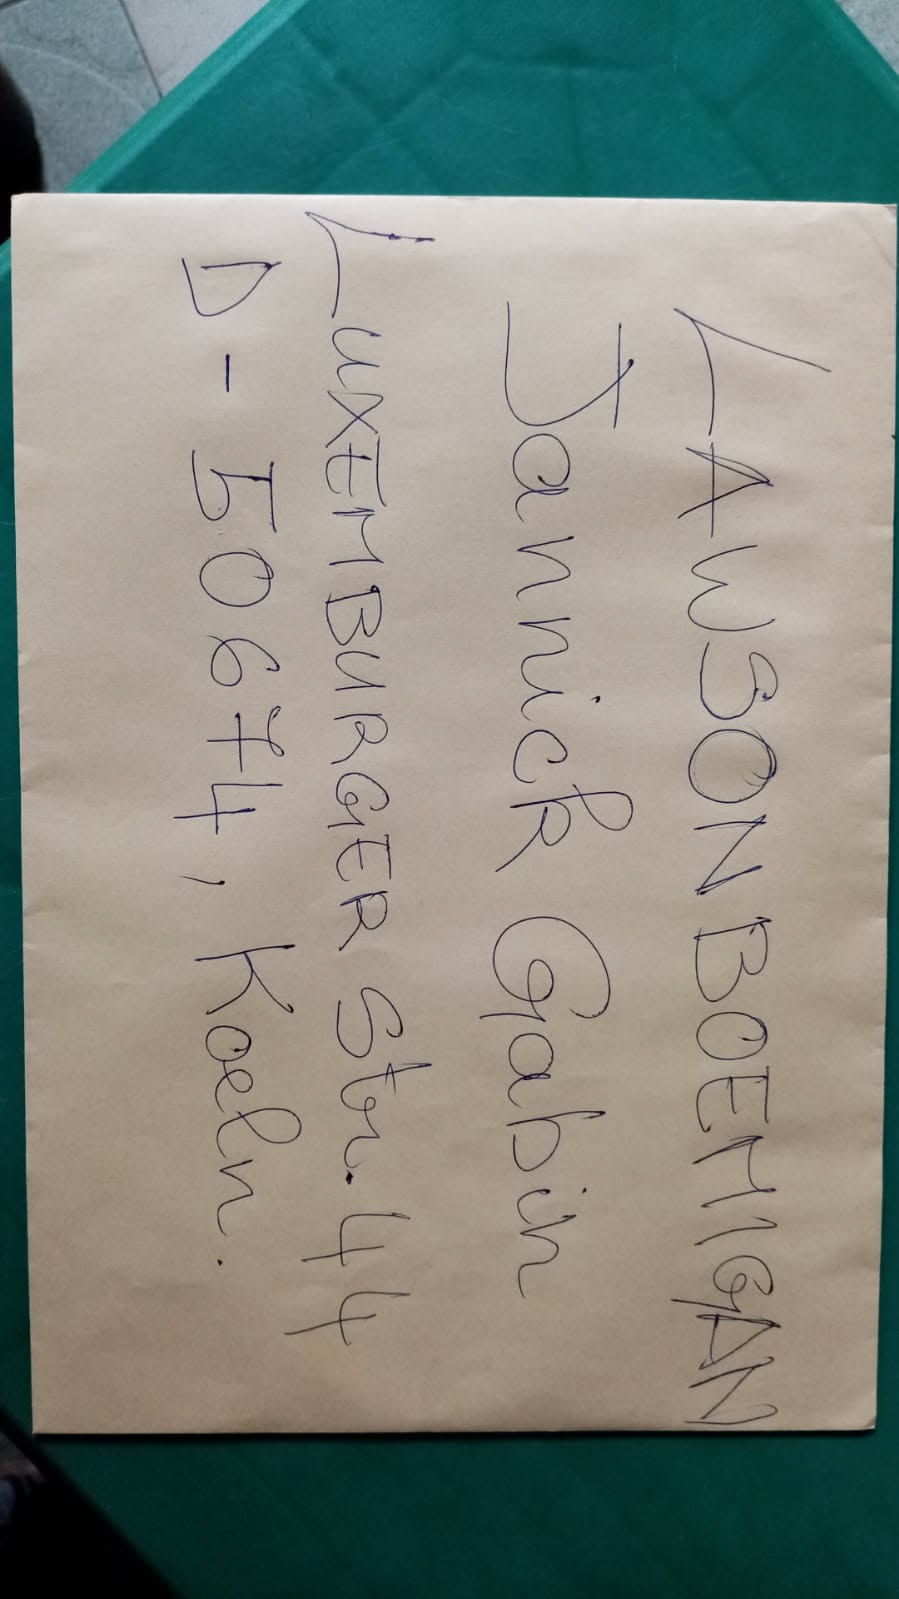 LAWSON BOEMIGAN
Jannick Gabin
LUXEMBURGER Str. 44
D - 50674, Koeln.